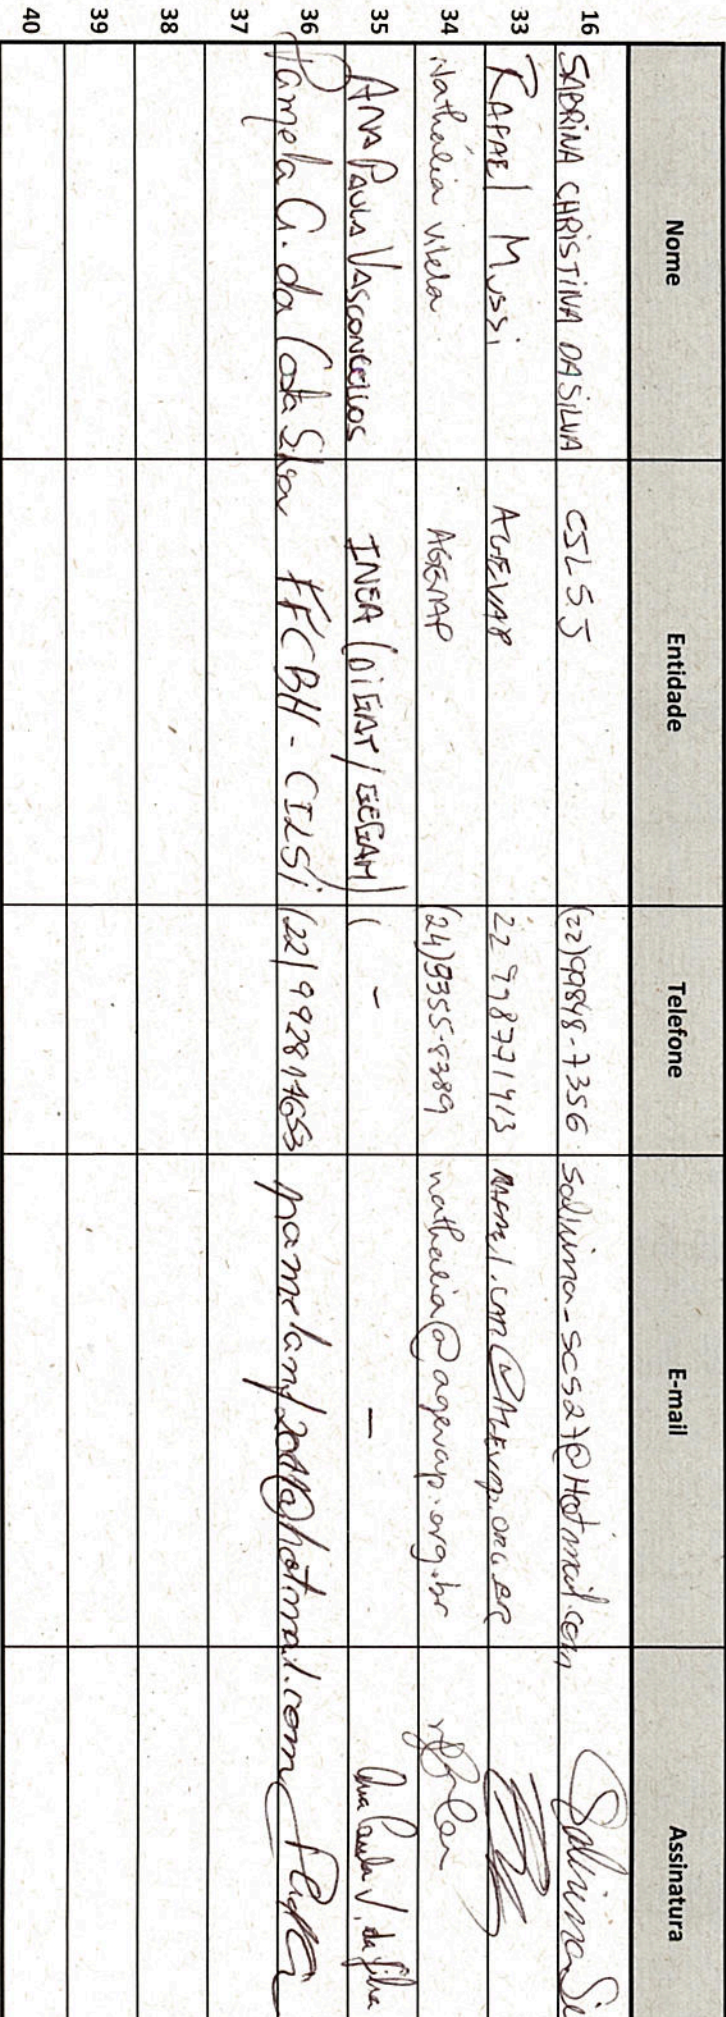 Nome Entidade Telefone E-mail Assinatura
16 SABRINA CHRISTINA DA SILVA CILSJ (22)99848-7356 sabrina-scs27@Hotmail.com
33 RAFAEL Mussi AGEVAP 22 998771413
34 Nathália Vilela AGEVAP (24)9355-8389 nathalia@agevap.org.br
35 ANA PAULA VASCONCELLOS INEA (DIGAT/GEGAM) - - Ana Paula V. da Silva
36 Pamela G. da Costa Silva FFCBH - CILSJ (22)
37
38
39
40